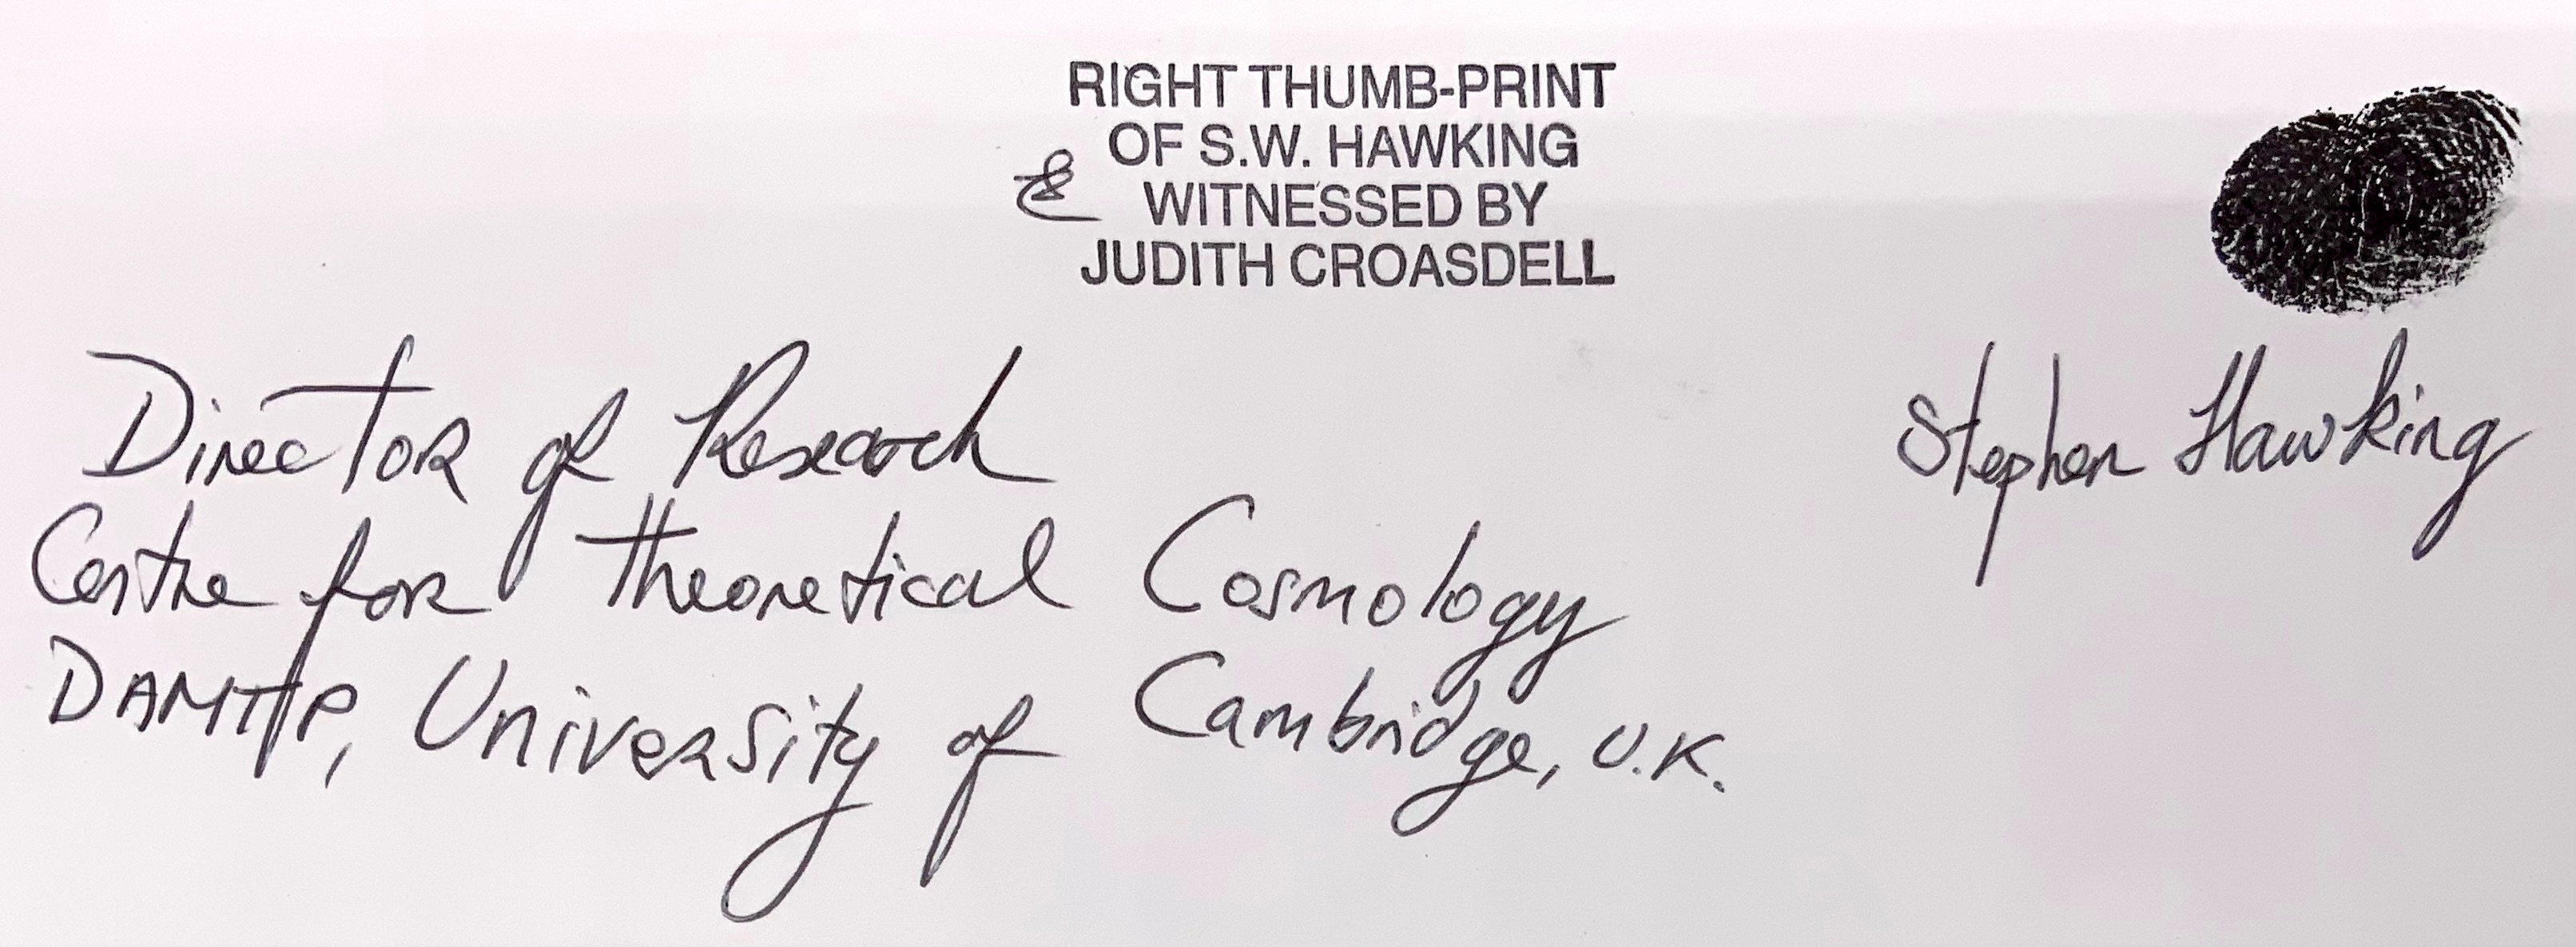 RIGHT THUMB-PRINT
OF S.W. HAWKING
WITNESSED BY
JUDITH CROASDELL
Director of Research
Stephen Hawking
Centre for Theoretical Cosmology
DAMTP, University of Cambridge, U.K.